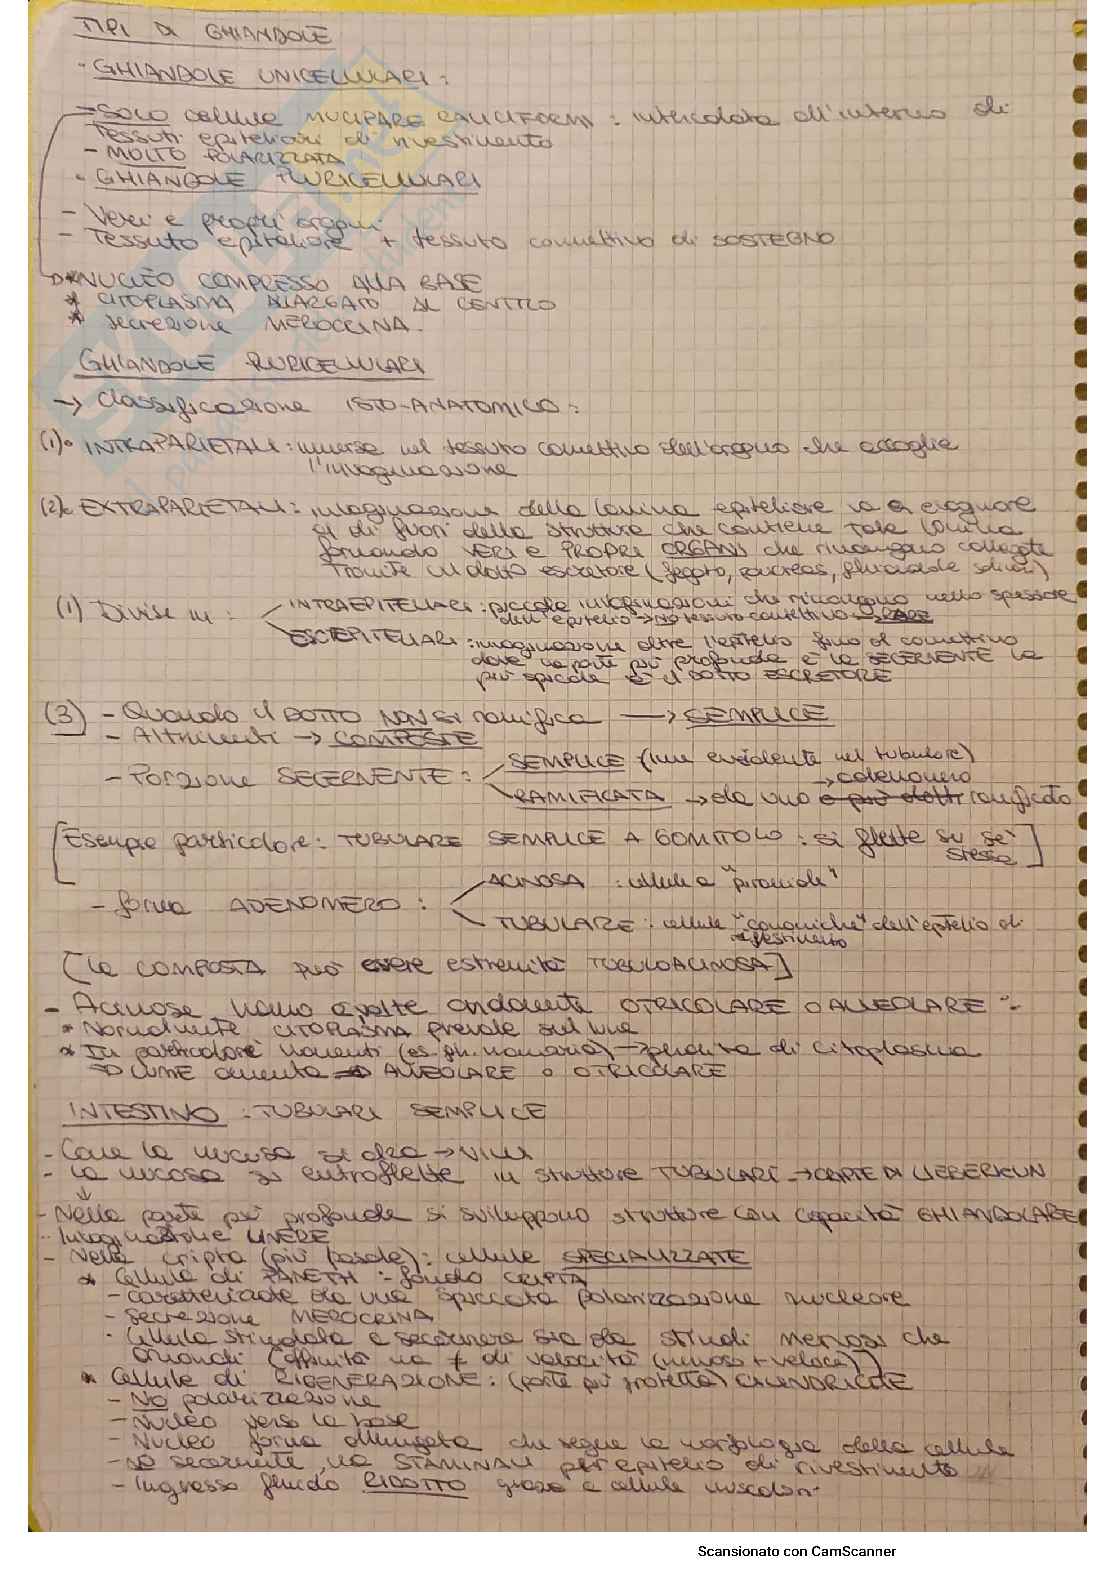 TIPI DI GHIANDOLE
· GHIANDOLE UNICELLULARI :
→ SOLO cellule MUCIPARE CALICIFORMI : intercalata all'interno di
Tessuti epiteliari di rivestimento
- MOLTO POLARIZZATA
· GHIANDOLE PLURICELLULARI
- Veri e propri organi
- Tessuto epiteliare + tessuto connettivo di SOSTEGNO
* NUCLEO COMPRESSO ALLA BASE
* CITOPLASMA ALLARGATO AL CENTRO
* secrezione MEROCRINA.
GHIANDOLE PLURICELLULARI
→ Classificazione ISTO-ANATOMICO :
(1)• INTRAPARIETALI : immerse nel tessuto connettivo dell'organo che accoglie
l'invaginazione
(2)• EXTRAPARIETALI : invaginazione della lamina epiteliare va a
al di fuori della struttura che contiene tale lamina
formando VERI e PROPRI ORGANI che rimangono collegate
tramite un dotto escretore (fegato, pancreas, ghiandole salivari)
(1) Divise in : INTRAEPITELIARI : piccole invaginazioni che rimangono nello spessore
dell'epitelio → NO tessuto connettivo → RARE
ESOEPITELIARI : invaginazione oltre l'epitelio fino al connettivo
dove la parte più profonda è la SECERNENTE la
più apicale è il DOTTO ESCRETORE
(3) - Quando il DOTTO NON si ramifica → SEMPLICE
- Altrimenti → COMPOSTE
- Porzione SECERNENTE : SEMPLICE (lume evidente nel tubulare)
→ adenomero
RAMIFICATA → da uno e più dotti ramificato
[Esempio particolare : TUBULARE SEMPLICE A GOMITOLO : si flette su se
stessa]
- forma ADENOMERO : ACINOSA : cellule a "piramide"
TUBULARE : cellule "canoniche" dell'epitelio di
rivestimento
[La COMPOSTA può avere estremità TUBULOACINOSA]
- Acinose hanno a volte andamento OTRICOLARE O ALVEOLARE :
* Normalmente CITOPLASMA prevale sul lume
* In particolare momenti (es. gh. mamaria) → perdita di citoplasma
⇒ LUME aumenta ⇒ ALVEOLARE O OTRICOLARE
INTESTINO : TUBULARI SEMPLICE
- Come la mucosa si alza → VILLI
- La mucosa si introflette in strutture TUBULARI → CRIPTE DI LIEBERKUN
↓
- Nella parte più profonda si sviluppano strutture con capacità GHIANDOLARE
- Invaginazione LINEARE
- Nella cripta (più basale) : cellule SPECIALIZZATE
* Cellula di PANETH :- fondo CRIPTA
- caratterizzate da una spiccata polarizzazione nucleare
- secrezione MEROCRINA
· Cellula stimolata a secernere sia da stimoli nervosi che
ormonali (affinità ma ≠ di velocità (nervoso + veloce))
* Cellule di RIGENERAZIONE : (parte più protetta) CILINDRICHE
- No polarizzazione
- Nucleo verso la base
- Nucleo forma allungata che segue la morfologia della cellula
- no secernente, ma STAMINALI per epitelio di rivestimento
- Ingresso fluido RIDOTTO grazie a cellule muscolari
Scansionato con CamScanner